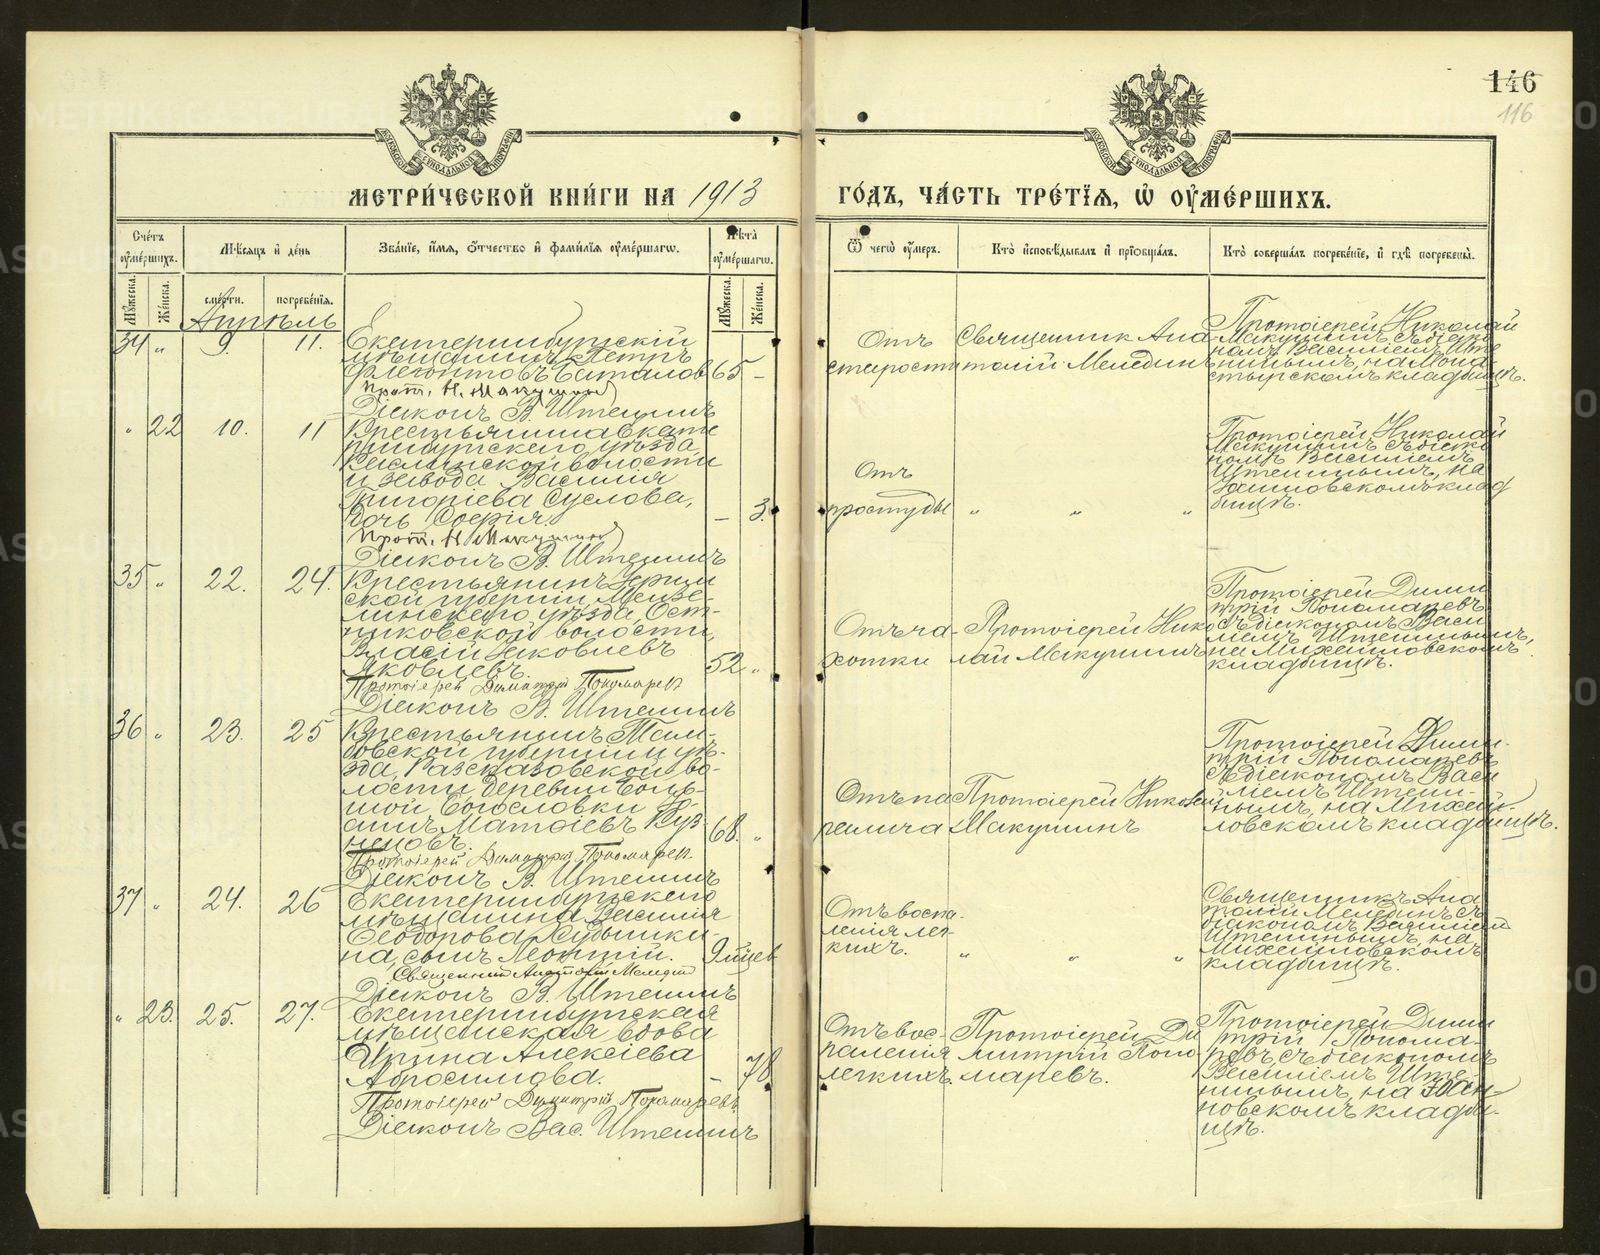 146
116
МЕТРИ́ЧЕСКОЙ КНИ́ГИ НА 1913 ГО́ДЪ, ЧА́СТЬ ТРЕ́ТІЯ, Ѡ ОУМЕ́РШИХЪ.
Сче́тъ оуме́ршихъ.
Мѣ́сяцъ и де́нь
Зва́ніе, и́мя, о́тчество и фами́лія оуме́ршагѡ.
Лѣ́та оуме́ршагѡ.
Ѿ чегѡ̀ оу́меръ.
Кто̀ исповѣ́дывалъ и пріобща́лъ.
Кто̀ соверша́лъ погребе́ніе, и гдѣ̀ погребены̀.
Му́жеска.
Же́нска.
сме́рти.
погребе́нія.
Му́жеска.
Же́нска.
Апрѣль
34 " 9. 11.
Екатеринбургскій
мѣщанинъ Петръ
Флегонтовъ Баталов 65 –
Прот. Н. Макушин
Діаконъ В. Штенинъ
Отъ
старости
Священник Ана
толій Меледин
Протоіерей Николай
Макушинъ съ діако
номъ Василіемъ Ште
нинымъ, на Мона
стырскомъ кладбищѣ.
" 22 10. 11
Крестьянина Екате
ринбургскаго уѣзда,
Каслинской волости
и завода Василія
Григоріева Суслова,
дочь Софія – 3.
Прот. Н. Макушин
Діаконъ В. Штенинъ
Отъ
простуды
" " "
Протоіерей Николай
Макушинъ съ діако
номъ Василіемъ
Штенинымъ, на
кладбищѣ.
35 " 22. 24.
Крестьянинъ
ской губерніи, Мензе-
линскаго уѣзда,
волости,
Власій Яковлевъ
Яковлевъ. 52 "
Протоіерей Димитрій Пономарев
Діаконъ В. Штенинъ
Отъ ча-
хотки
Протоіерей Нико
лай Макушинъ
Протоіерей Дими
трій Пономаревъ
съ діакономъ Васи
ліемъ Штенинымъ,
на Михайловскомъ
кладбищѣ.
36 " 23. 25
Крестьянинъ Там-
бовской губерніи и уѣ-
зда, Разсказовской во-
лости деревни Боль-
шой Богословки
Матѳіевъ Куз-
нецовъ. 68. "
Протоіерей Димитрій Пономарев.
Діаконъ В. Штенинъ
Отъ па
ралича
Протоіерей Николай
Макушинъ
Протоіерей Дими-
трій Пономаревъ
съ діакономъ Васи
ліемъ Штени-
нымъ, на Михай-
ловскомъ кладбищѣ.
37 " 24. 26
Екатеринбургскаго
мѣщанина Василія
Ѳеодорова
на, сынъ Леонтій. 9 мѣсцев
Священник Анатолій Меледин
Діаконъ В. Штенинъ
Отъ воспа-
ленія лег-
кихъ.
" " "
Священникъ Ана
толій Меледин съ
діакономъ Василіем
Штенинымъ, на
Михайловскомъ
кладбищѣ.
" 23. 25. 27.
Екатеринбургская
мѣщанская вдова
Ирина Алексіева
Абросимова. – 78
Протоіерей Димитрій Пономаревъ
Діаконъ Вас. Штенинъ
Отъ вос-
паленія
легкихъ.
Протоіерей Ди
митрій Поно
маревъ.
Протоіерей Дими
трій Понома-
ревъ, съ діакономъ
Василіемъ Ште-
нинымъ, на Іоан-
новскомъ кладби-
щѣ.